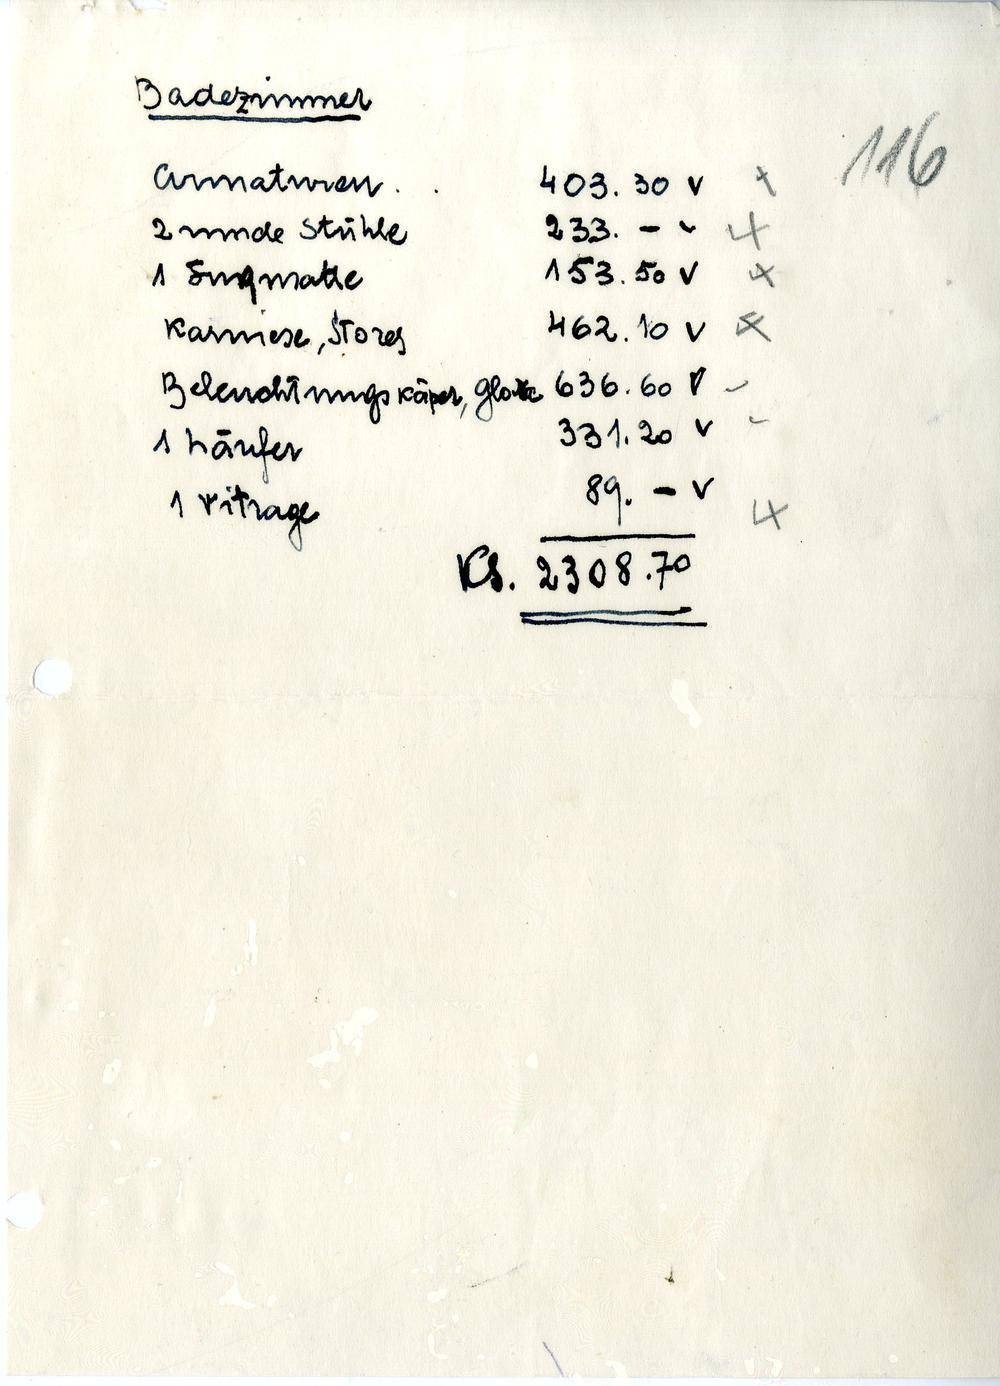 Badezimmer
116
Armaturen . . 403.30 v
2 runde Stühle 233. –
1 153.50 v
Karniese, Stores 462.10 v
Beleuchtungskörper, 636.60 v
1 Läufer 331.20 v
1 Vitrage 89. – v
Kč. 2308.70